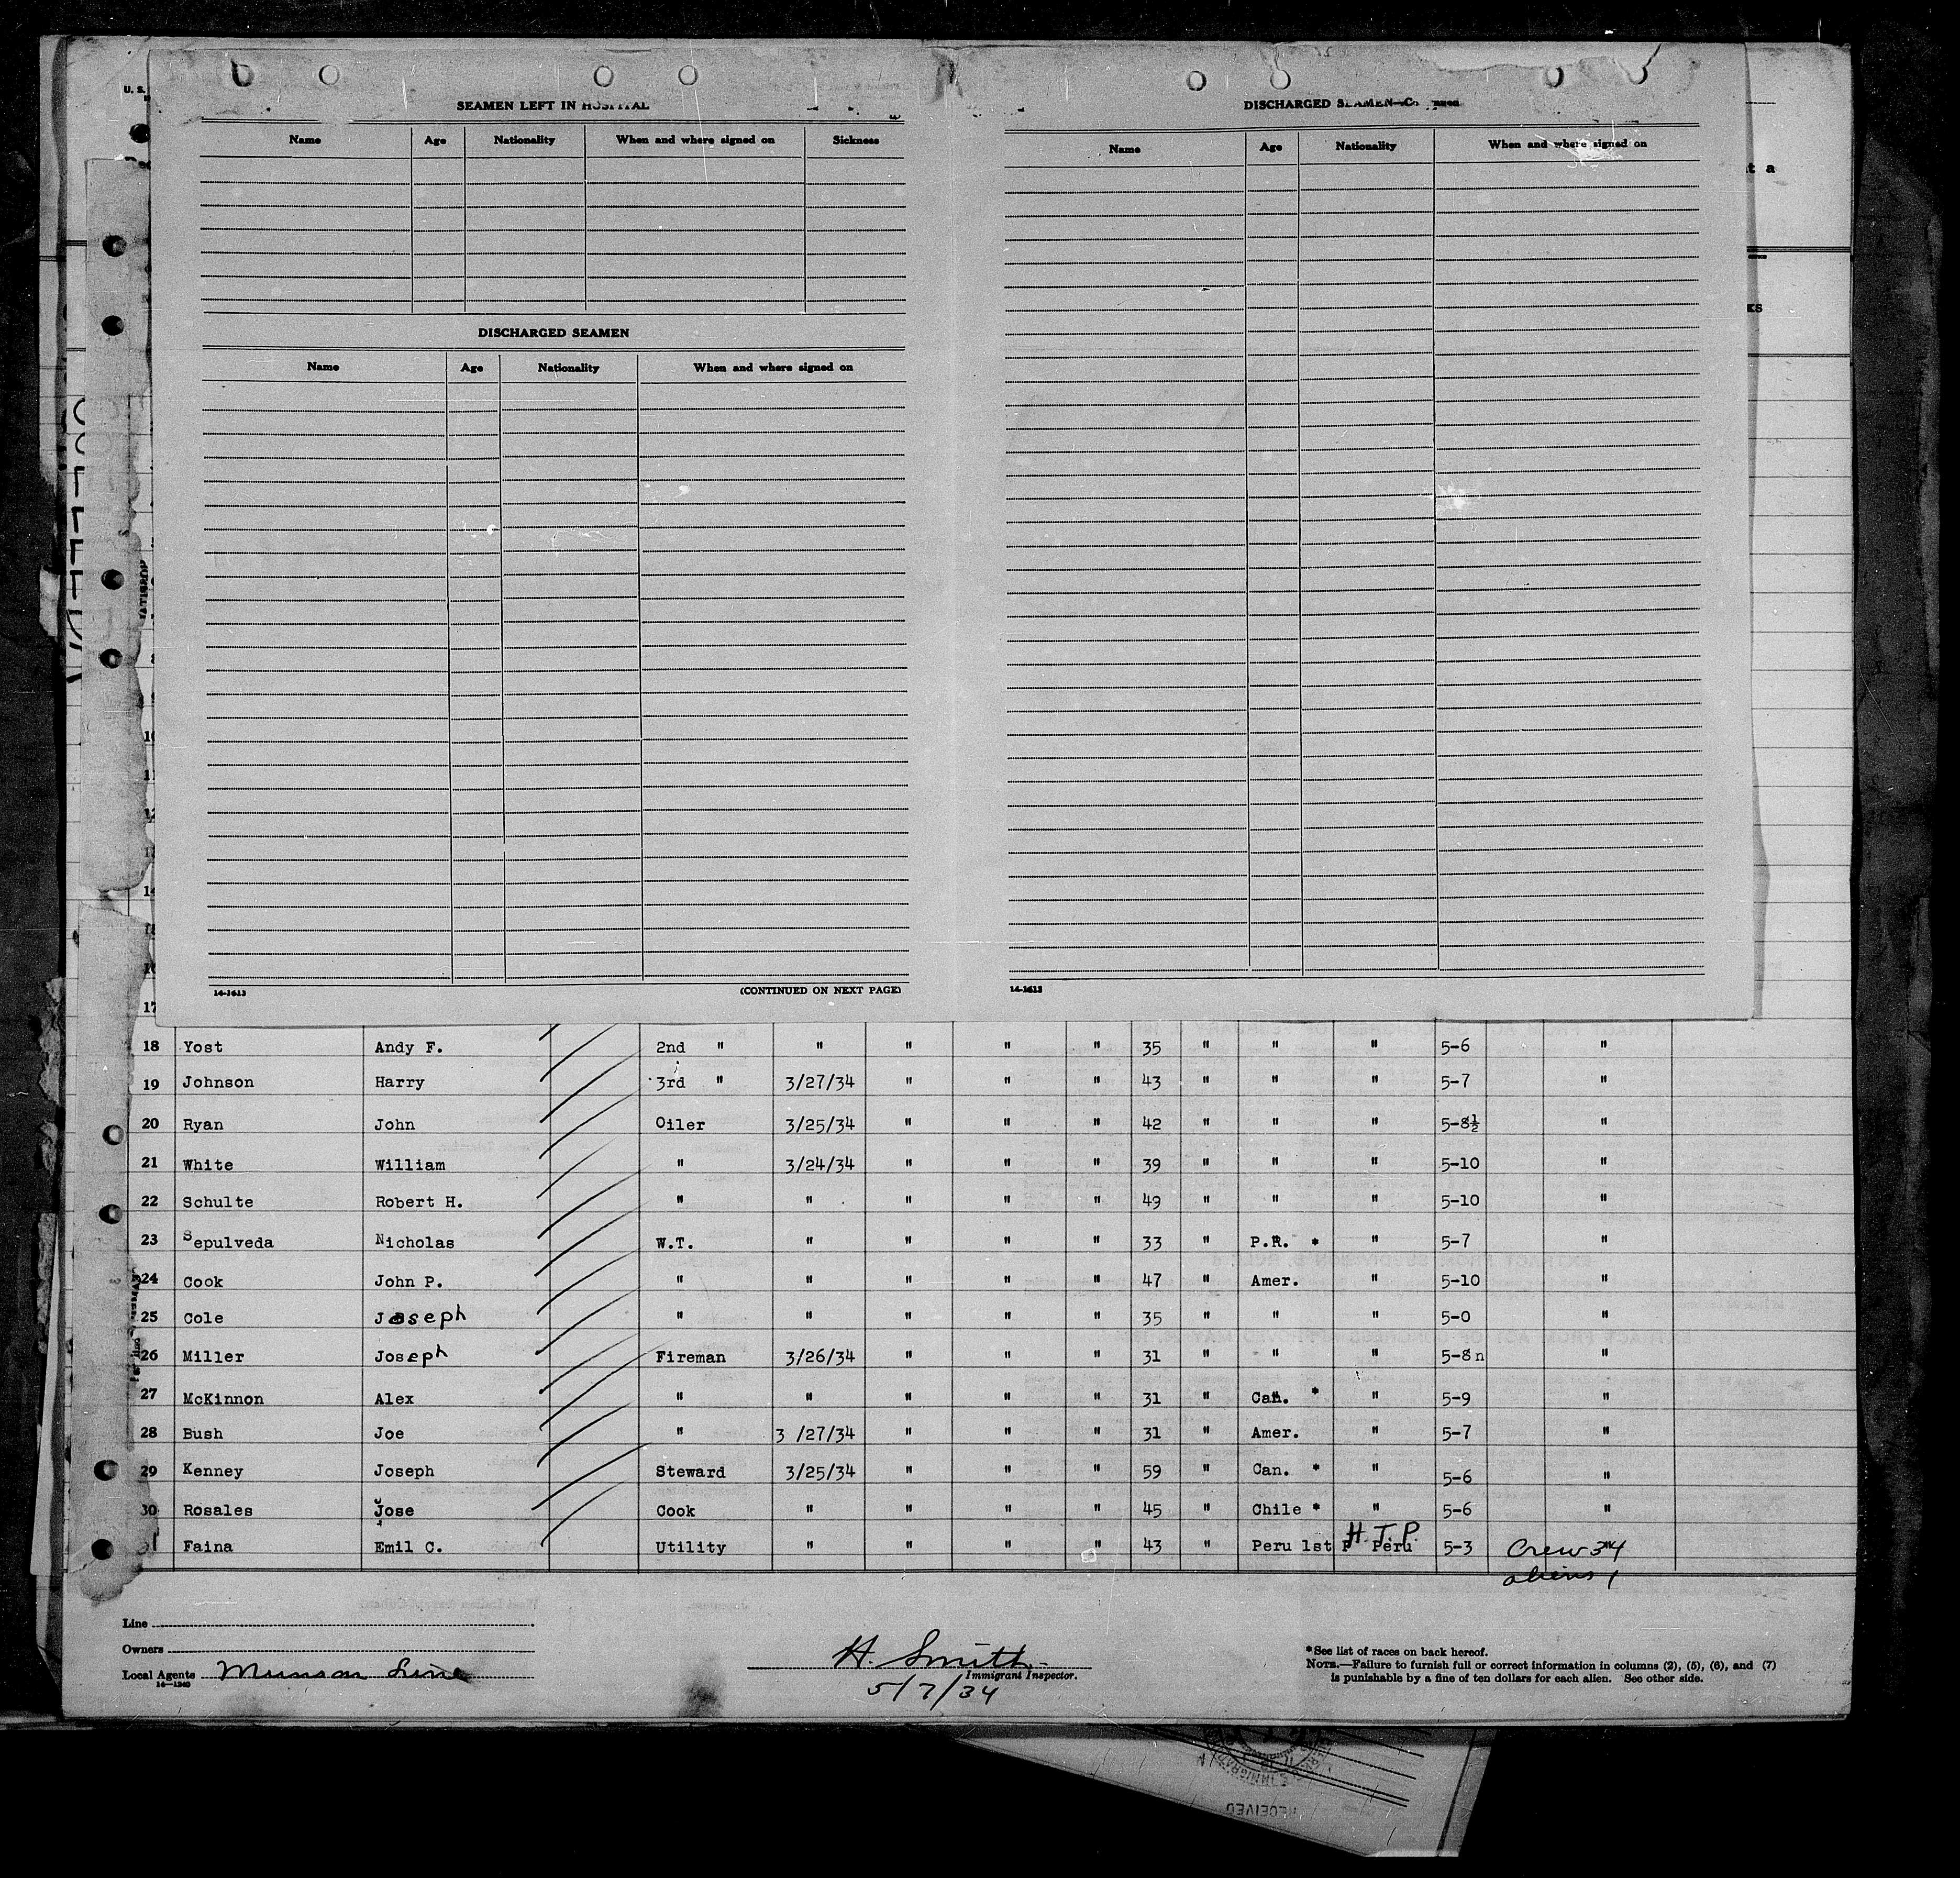 U. S.
SEAMEN LEFT IN HOSPITAL
Name Age Nationality When and where signed on Sickness
DISCHARGED SEAMEN
Name Age Nationality When and where signed on
14-1613 (CONTINUED ON NEXT PAGE)
DISCHARGED SEAMEN—Continued
Name Age Nationality When and where signed on
14-1613
t a
KS
17
18 Yost Andy F. 2nd " " " " " 35 " " " 5-6 "
19 Johnson Harry 3rd " 3/27/34 " " " 43 " " " 5-7 "
20 Ryan John Oiler 3/25/34 " " " 42 " " " 5-8½ "
21 White William " 3/24/34 " " " 39 " " " 5-10 "
22 Schulte Robert H. " " " " " 49 " " " 5-10 "
23 Sepulveda Nicholas W.T. " " " " 33 " P.R. * " 5-7 "
24 Cook John P. " " " " " 47 " Amer. " 5-10 "
25 Cole Joseph " " " " " 35 " " " 5-0 "
26 Miller Joseph Fireman 3/26/34 " " " 31 " " " 5-8n "
27 McKinnon Alex " " " " " 31 " Can. * " 5-9 "
28 Bush Joe " 3 /27/34 " " " 31 " Amer. " 5-7 "
29 Kenney Joseph Steward 3/25/34 " " " 59 " Can. * " 5-6 "
30 Rosales Jose Cook " " " " 45 " Chile * " 5-6 "
31 Faina Emil C. Utility " " " " 43 " Peru 1st P Peru 5-3 "
H.T.P.
Crew 34
aliens 1
Line
Owners
Local Agents Munson Line
14—1240
H. Smith
Immigrant Inspector.
5/7/34
*See list of races on back hereof.
NOTE.—Failure to furnish full or correct information in columns (2), (5), (6), and (7)
is punishable by a fine of ten dollars for each alien. See other side.
RECEIVED